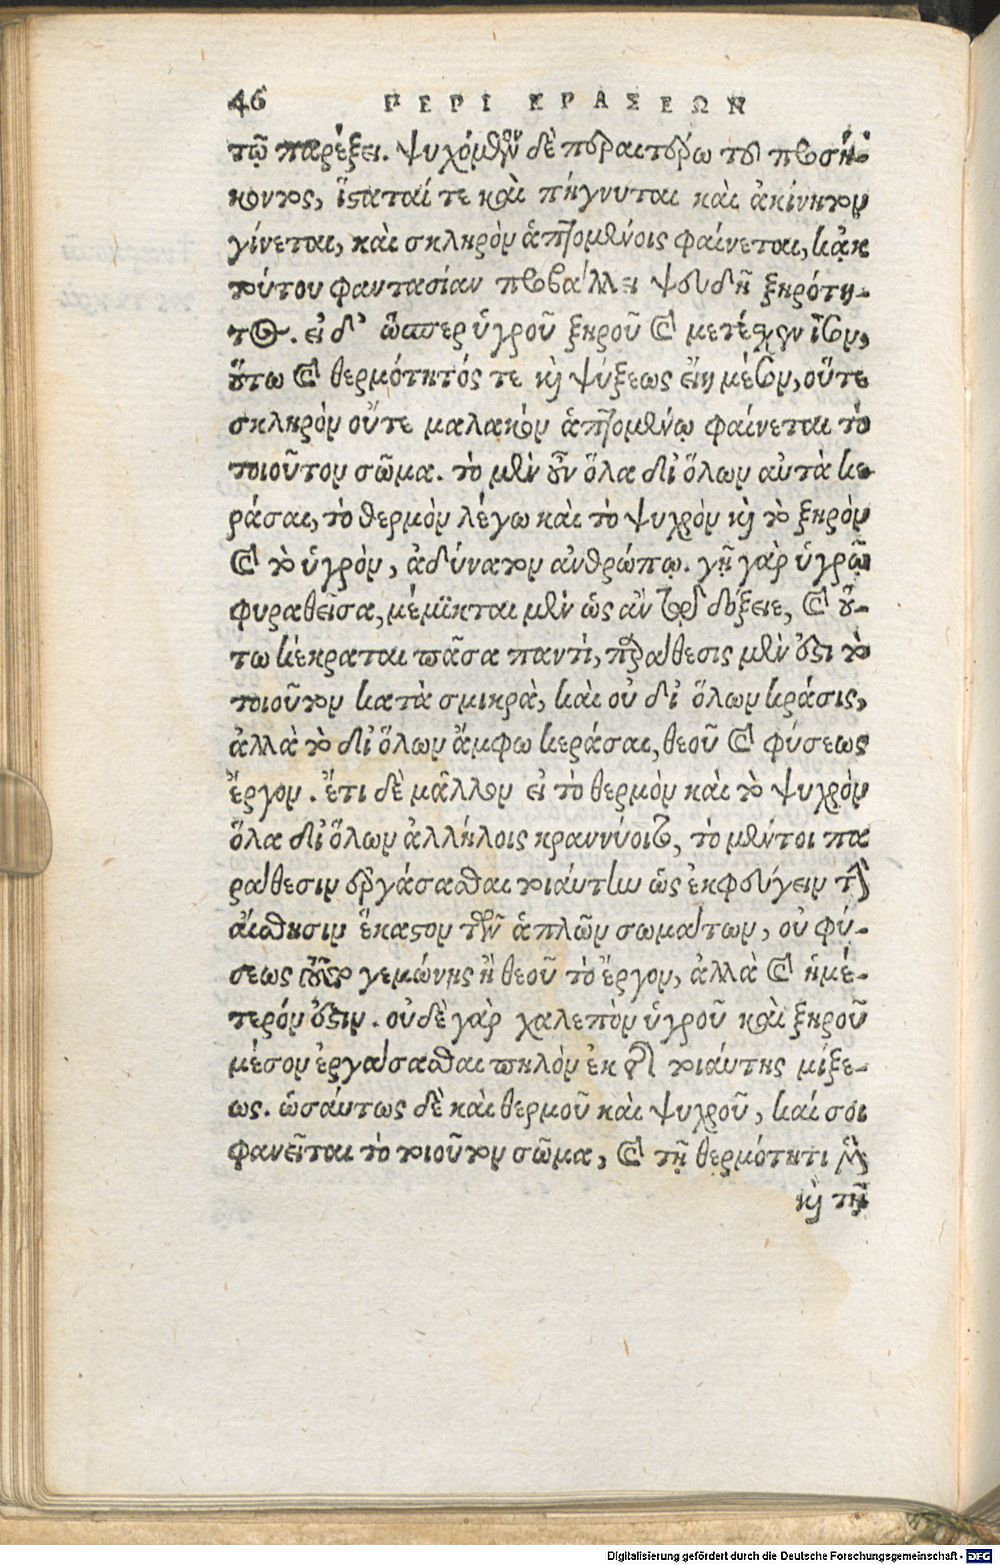 46 ΠΕΡΙ ΚΡΑΣΕΩΝ
τῷ παρέξει. ψυχόμενον δὲ περαιτέρω τοῦ προσή-
κοντος, ἵσταταί τε καὶ πήγνυται καὶ ἀκίνητον
γίνεται, καὶ σκληρὸν ἁπτομένοις φαίνεται, κἀκ
τούτου φαντασίαν προβάλλει ψευδῆ ξηρότη-
τος. εἰ δ' ὥσπερ ὑγροῦ ξηροῦ καὶ μετέχον ἴσον,
οὕτω καὶ θερμότητός τε καὶ ψύξεως εἴη μέσον, οὔτε
σκληρὸν οὔτε μαλακὸν ἁπτομένῳ φαίνεται τὸ
τοιοῦτον σῶμα. τὸ μὲν οὖν ὅλα δι' ὅλων αὐτὰ κε-
ράσαι, τὸ θερμὸν λέγω καὶ τὸ ψυχρὸν καὶ τὸ ξηρὸν
καὶ τὸ ὑγρὸν, ἀδύνατον ἀνθρώπῳ. γῆ γὰρ ὑγρῷ
φυραθεῖσα, μέμϊκται μὲν ὡς ἄν τῳ δόξειε, καὶ οὕ-
τω κέκραται πᾶσα παντὶ, παράθεσις μὲν ἐστι τὸ
τοιοῦτον κατὰ σμικρὰ, καὶ οὐ δι' ὅλων κράσις,
ἀλλὰ τὸ δι' ὅλων ἄμφω κεράσαι, θεοῦ καὶ φύσεως
ἔργον. ἔτι δὲ μᾶλλον εἰ τὸ θερμὸν καὶ τὸ ψυχρὸν
ὅλα δι' ὅλων ἀλλήλοις κραννύοιτο, τὸ μέντοι πα
ράθεσιν ἐργάσασθαι τοιάυτην ὡς ἐκφεύγειν τὴν
αἴσθησιν ἕκαστον τῶν ἁπλῶν σωμάτων, οὐ φύ-
σεως γεμώνης ἢ θεοῦ τὸ ἔργον, ἀλλὰ καὶ ἡμέ-
τερόν ἐστιν. οὐδὲ γὰρ χαλεπὸν ὑγροῦ καὶ ξηροῦ
μέσον ἐργάσασθαι πηλὸν ἐκ τῆς τοιάυτης μίξε-
ως. ὡσάυτως δὲ καὶ θερμοῦ καὶ ψυχροῦ, καί σοι
φανεῖται τὸ τοιοῦτον σῶμα, καὶ τῇ θερμότητι μὲν
καὶ τῇ
Digitalisierung gefördert durch die Deutsche Forschungsgemeinschaft - DFG